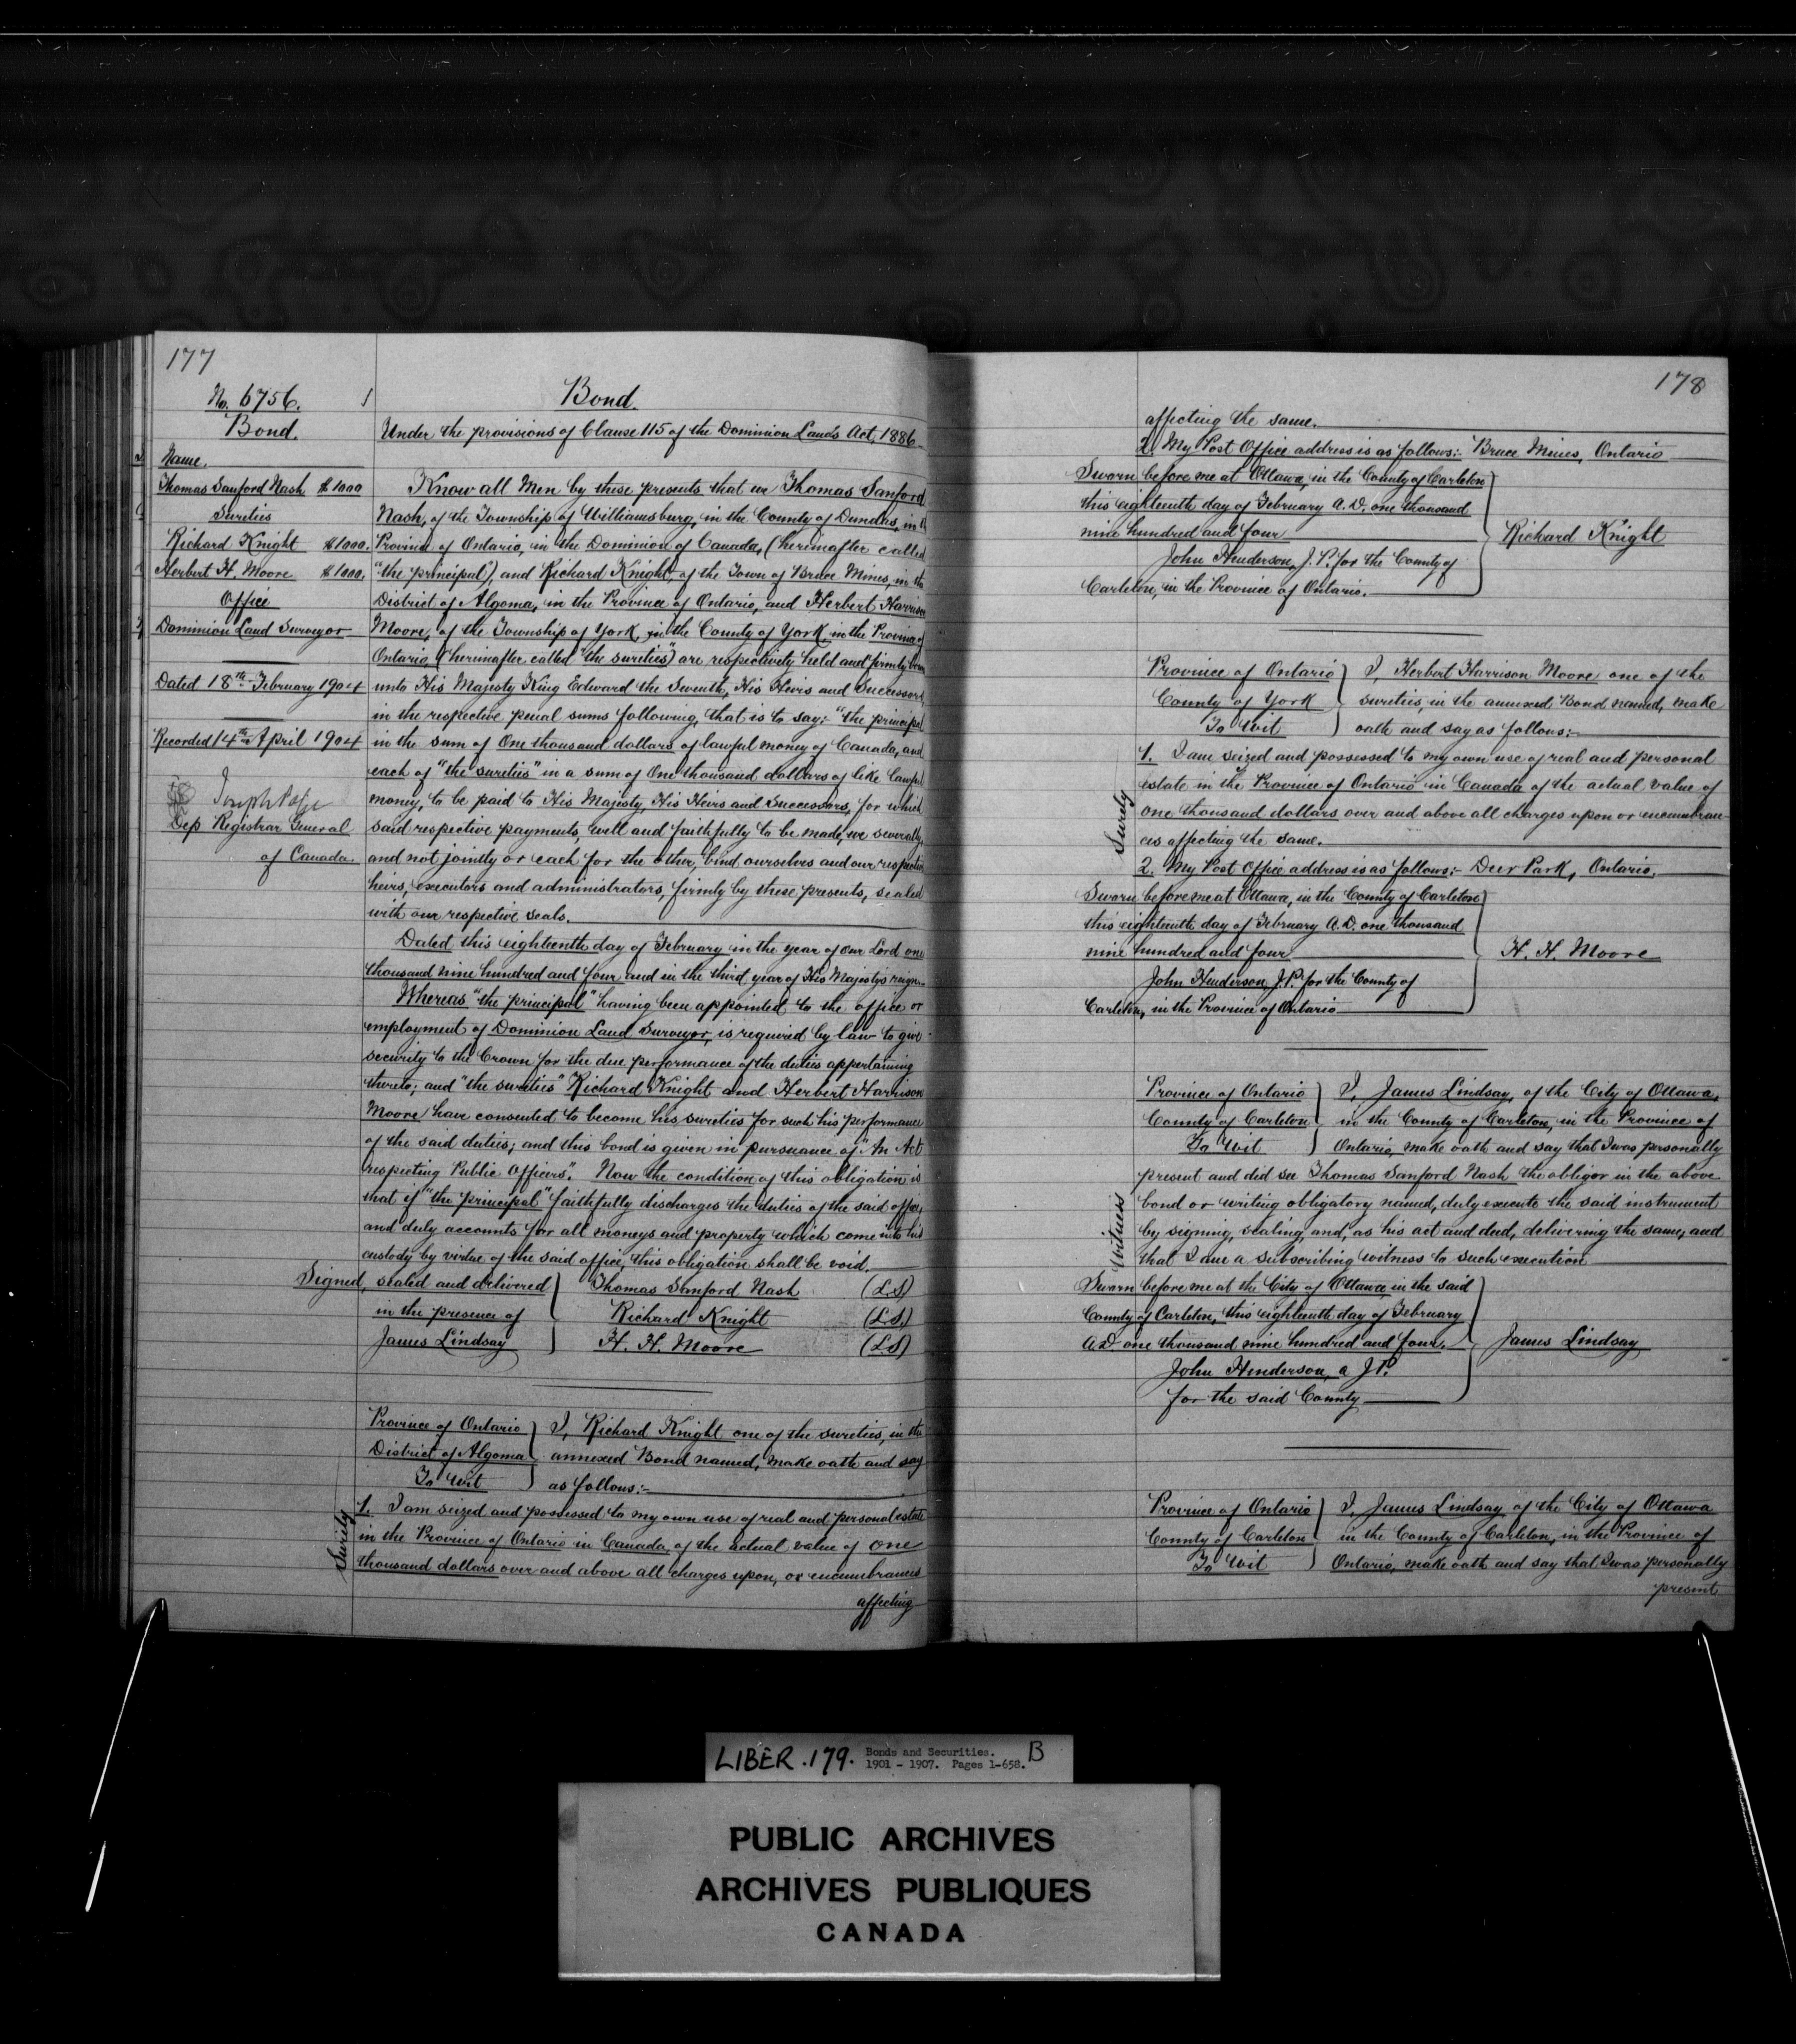 177
No. 6756.
Bond.
Name.
Thomas Sanford Nash $1000
Sureties
Richard Knight $1000.
Herbert H. Moore $1000.
Office
Dominion Land Surveyor
Dated 18th February 1904
Recorded 14th April 1904
Joseph Pope
Dep Registrar General
of Canada.
Bond.
Under the provisions of Clause 115 of the Dominion Lands Act, 1886
Know all Men by these presents that we Thomas Sanford
Nash, of the Township of Williamsburg, in the County of Dundas, in the
Province of Ontario, in the Dominion of Canada, (hereinafter called
"the principal"), and Richard Knight, of the Town of Bruce Mines, in the
District of Algoma, in the Province of Ontario, and Herbert Harrison
Moore, of the Township of York, in the County of York, in the Province of
Ontario, (hereinafter called "the sureties") are respectively held and firmly bound
unto His Majesty King Edward the Seventh, His Heirs and Successors,
in the respective penal sums following, that is to say: "the principal
in the sum of One thousand dollars of lawful money of Canada, and
each of "the sureties" in a sum of One thousand dollars of like lawful
money, to be paid to His Majesty, His Heirs and Successors, for which
said respective payments, well and faithfully to be made, we severally,
and not jointly or each for the other, bind ourselves and our respective
heirs, executors and administrators, firmly by these presents, sealed
with our respective seals.
Dated this eighteenth day of February in the year of our Lord one
thousand nine hundred and four and in the third year of His Majesty's reign.
Whereas "the principal" having been appointed to the office or
employment of Dominion Land Surveyor, is required by law to give
security to the Crown for the due performance of the duties appertaining
thereto; and "the sureties" Richard Knight and Herbert Harrison
Moore have consented to become his sureties for such his performance
of the said duties; and this bond is given in pursuance of "An Act
respecting Public Officers". Now the condition of this obligation is
that if "the principal" faithfully discharges the duties of the said office,
and duly accounts for all moneys and property which come into his
custody by virtue of the said office, this obligation shall be void.
Signed, sealed and delivered Thomas Sanford Nash (LS)
in the presence of Richard Knight (LS.)
James Lindsay H. H. Moore (LS)
Province of Ontario I, Richard Knight one of the sureties, in the
District of Algoma annexed Bond named, make oath and say
To Wit as follows:-
Surety
1. I am seized and possessed to my own use of real and personal estate
in the Province of Ontario in Canada, of the actual value of one
thousand dollars over and above all charges upon, or encumbrances
affecting
178
affecting the same.
2. My Post Office address is as follows:- Bruce Mines, Ontario
Sworn before me at Ottawa, in the County of Carleton
this eighteenth day of February A.D. one thousand
nine hundred and four Richard Knight
John Henderson, J.P. for the County of
Carleton, in the Province of Ontario.
Province of Ontario I, Herbert Harrison Moore one of the
County of York sureties, in the annexed Bond named, make
To Wit oath and say as follows:-
Surety
1. I am seized and possessed to my own use of real and personal
estate in the Province of Ontario in Canada of the actual value of
one thousand dollars over and above all charges upon or encumbran-
ces affecting the same.
2. My Post Office address is as follows:- Deer Park, Ontario.
Sworn before me at Ottawa, in the County of Carleton
this eighteenth day of February A.D. one thousand
nine hundred and four H. H. Moore
John Henderson J.P. for the County of
Carleton, in the Province of Ontario
Province of Ontario I, James Lindsay, of the City of Ottawa,
County of Carleton in the County of Carleton, in the Province of
To Wit Ontario, make oath and say that I was personally
present and did see Thomas Sanford Nash the obligor in the above
Witness
bond or writing obligatory named, duly execute the said instrument
by signing, sealing, and, as his act and deed, delivering the same, and
that I am a subscribing witness to such execution
Sworn before me at the City of Ottawa in the said
County of Carleton, this eighteenth day of February
A.D. one thousand nine hundred and four. James Lindsay
John Henderson, a J.P.
for the said County
Province of Ontario I, James Lindsay, of the City of Ottawa
County of Carleton in the County of Carleton, in the Province of
To Wit Ontario, make oath and say that I was personally
present
LIBER.179. Bonds and Securities. B
1901 - 1907. Pages 1-658.
PUBLIC ARCHIVES
ARCHIVES PUBLIQUES
CANADA